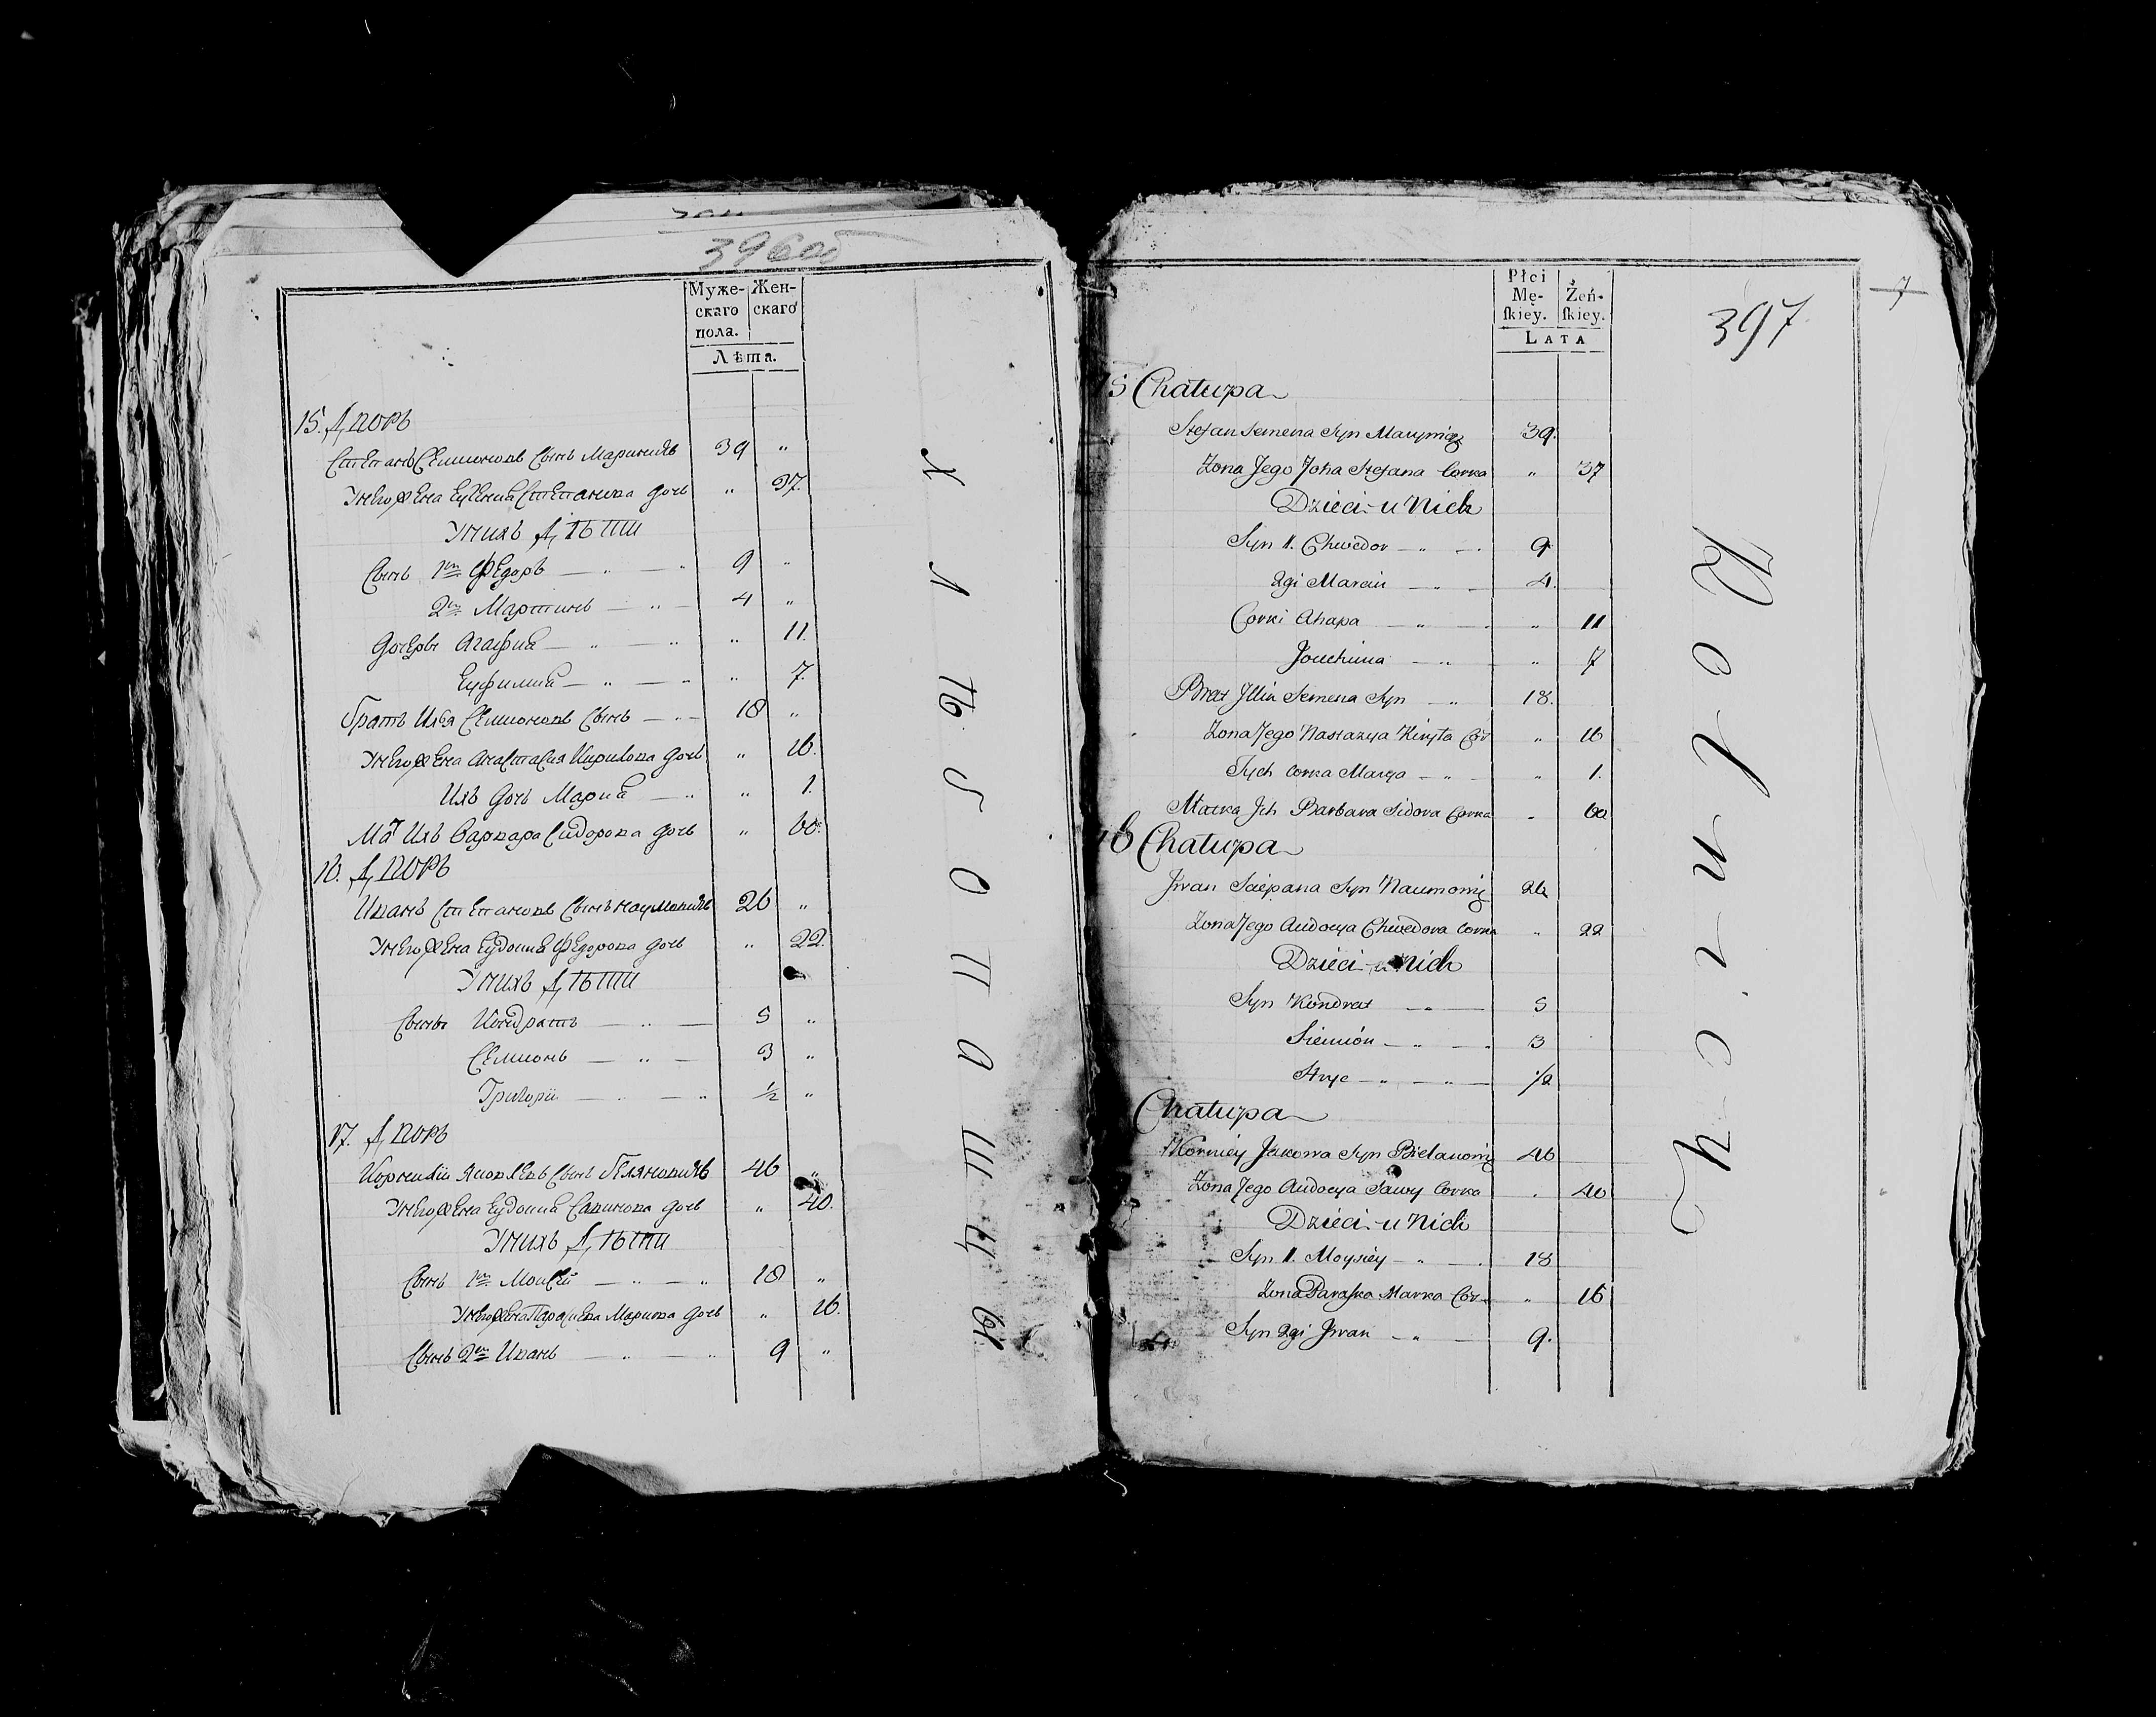 396об
Муже-
скаго
пола.
Жен-
скаго
Лѣта.
15. Дворъ
Степанъ Семионовъ Сынъ Мариничъ 39 „
У него жена Еугениа Степанова дочь „ 37.
У нихъ Дѣти
Сынъ 1й Федоръ — „ — „ 9 „
2й Мартинъ — „ — 4 „
дочеры Агафиа — „ — „ „ 11.
Еуфимиа — „ — „ „ 7.
братъ Илья Семионовъ Сынъ — „ — 18 „
У него жена Анастасия Кирилова дочь „ 16.
Ихъ дочь Мариа — „ „ 1.
Мат Ихъ Варвара Сидорова дочь „ 60.
16. Дворъ
Иванъ Степановъ Сынъ Наумовичъ 26 „
У него жена Еудокиа Федорова дочь „ 22.
У нихъ Дѣти
Сыны Кондратъ — „ — 5 „
Семионъ — „ — 3 „
Григорій — „ — „ ½ „
17. Дворъ
Корнилій Яковлевъ Сынъ Беляновичъ 46 „
У него жена Еудокиа Савинова дочь „ 40.
У нихъ Дѣти
Сынъ 1й Моисей — „ — „ 18 „
У него жена Параскева Маркова дочь „ 16.
Сынъ 2й Иванъ — „ — „ 9 „
Х л ѣ б о п а ш ц ы
Płci
Mę-
skiey.
Żeń-
skiey.
LATA
397
7
15 Chałupa
Stefan Semena Syn Marynicz 39.
Zona Jego Joha Stefana Corka „ 37
Dzieci u Nich
Syn 1. Chwedor — „ — 9
2gi Marcin — „ — 4.
Corki Ahapa — „ — „ 11
Jouchima — „ — „ 7
Brat Jllia Semena Syn — „ 18.
Zona Jego Nastazya Kiryła Cór „ 16
Jych Corka Marya — „ — „ 1.
Matka Jch Barbara Sidora Corka „ 60
16 Chałupa
Jwan Sciepana Syn Naumowicz 26
Zona Jego Audocya Chwedora Corka „ 22
Dzieci u Nich
Syn Kondrat — „ — 5
Siemión — „ — 3
Hryc — „ — „ — ½
Chałupa
Korniey Jakowa Syn Bielanowicz 46
Zona Jego Audocya Sawy Corka „ 40
Dzieci u Nich
Syn 1. Moysiey — „ — 18
Zona Paraska Marka Cór „ 16
Syn 2gi Jwan — „ — 9.
R o l n i c y